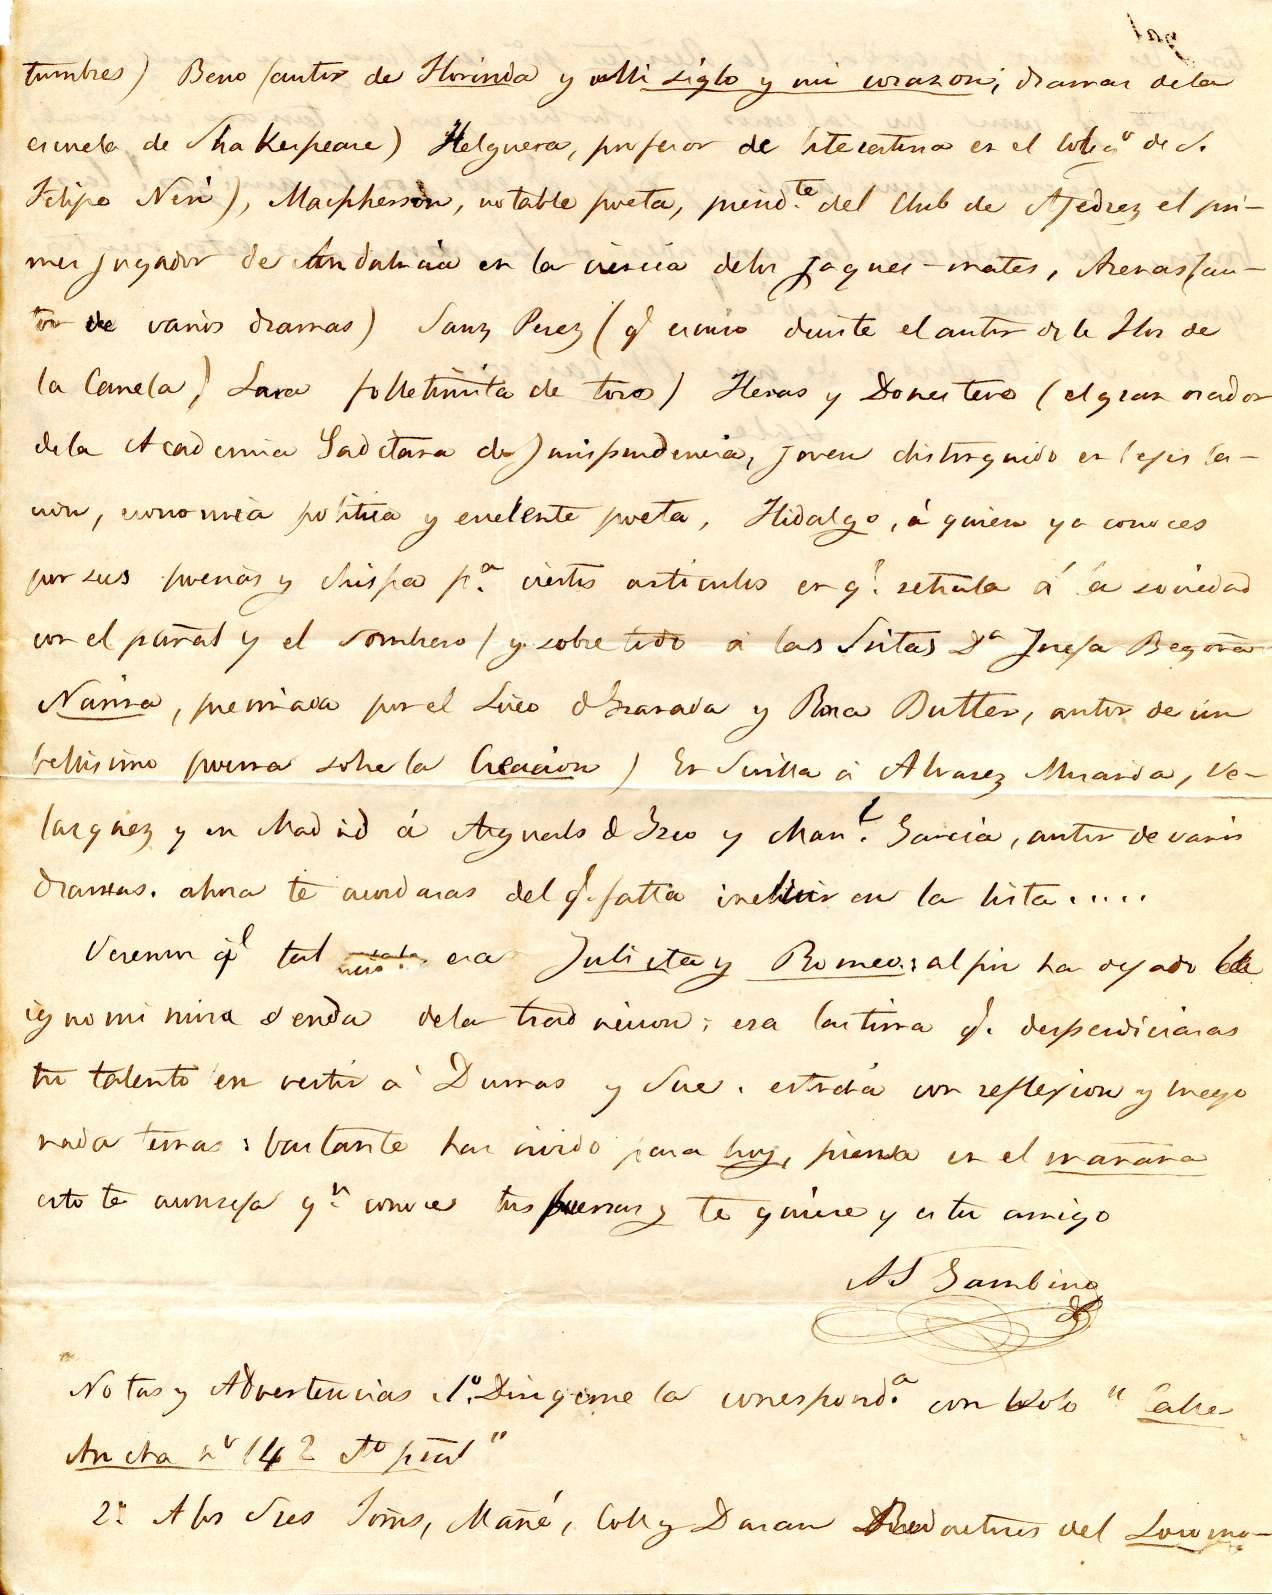 tumbres) Beno (autor de Florinda y Mi siglo y mi corazon, dramas dela
escuela de Shakespeare) Helguera, profesor de literatura en el Coleg.º de S.
Felipe Neri), Macpherson, notable poeta, presid.te del Club de Ajedrez el pri-
mer jugador de Andalucia en la ciencia delos Jaques-mates, Arenas (au-
tor de varios dramas) Sanz Perez (q.e como el autor de la Flor de
la Canela) Lara folletinista de toros) Heras y Donestevo (el gran orador
dela Academia Gaditana de Jurisprudencia, joven distinguido en legisla-
cion, economia politica y excelente poeta, Hidalgo, á quien ya conoces
por sus poesias y chispa p.a ciertos articulos en q.e retrata á la sociedad
con el puñal y el sombrero) y sobre todo á las Sritas D.a Josefa Begoña
Narisa, premiada por el Liceo d Granada y Rosa Butler, autor de un
bellisimo poema sobre la Creacion) En Sevilla á Alvarez Miranda, Ve-
lazquez y en Madrid á Ayguals d Izco y Man.l Garcia, autor de varios
dramas. ahora te acordaras del q.e falta incluir en la lista.....
Veremos q.l tal era Julieta y Romeo: al fin ha dejado la
ignominiosa senda dela traduccion: era lastima q.e desperdiciaras
tu talento en vertir á Dumas y Sue. estudia con reflexion y luego
nada temas: bastante has vivido para hoy, piensa en el mañana
esto te aconseja q.n conoce tus fuerzas y te quiere y es tu amigo
AS Gambino
Notas y Advertencias 1.º Dirigeme la correspond.a con solo "Calle
Ancha n.º 142 pral"
2.ª A los Sres Soms, Mañé, Coll y Duran Redactores del Locomo-